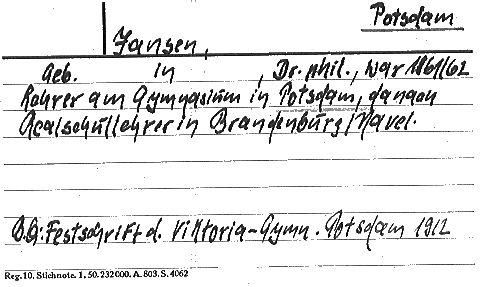 Potsdam
Jansen,
Geb. in , Dr. phil., war 1861/62
Lehrer am Gymnasium in Potsdam, danach
Realschullehrer in Brandenburg/Havel.
B.G: Festschrift d. Viktoria-Gymn. Potsdam 1912
Reg. 10. Stichnote. 1, 50. 232000. A. 803. S. 4062